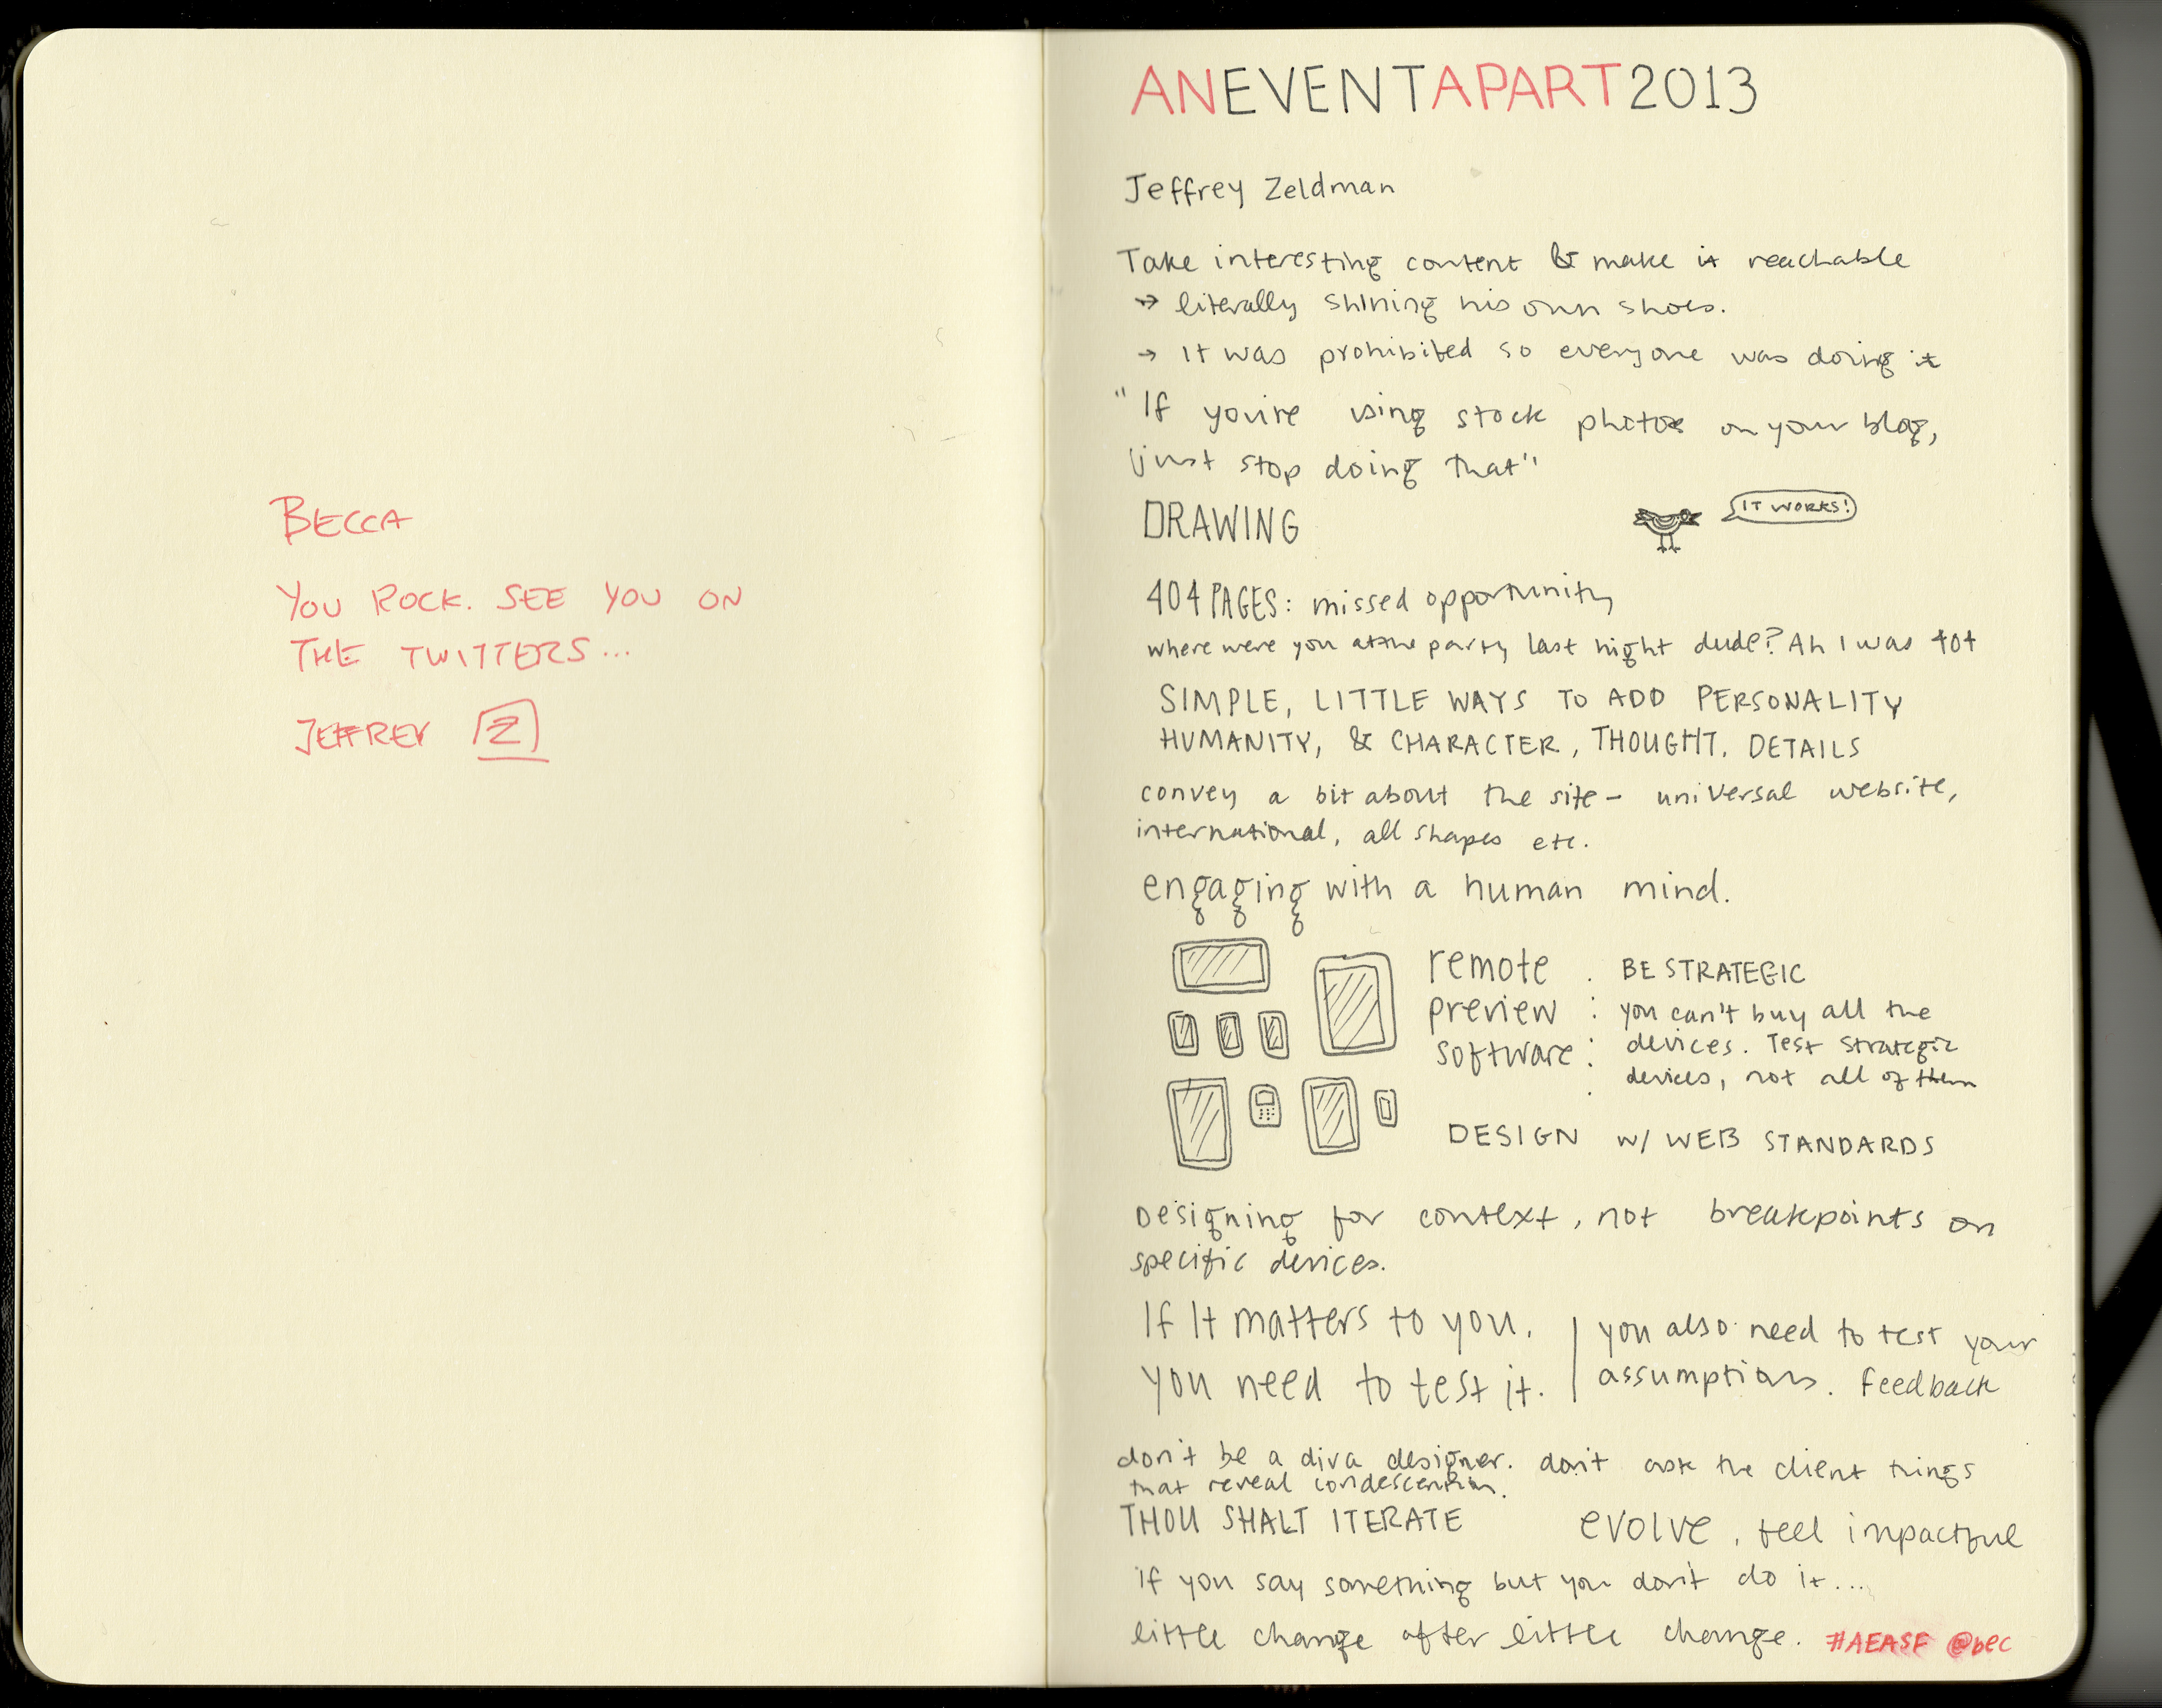 BECCA
YOU ROCK. SEE YOU ON
THE TWITTERS...
JEFFREY Z
ANEVENTAPART2013
Jeffrey Zeldman
Take interesting content & make it reachable
→ literally shining his own shoes.
→ It was prohibited so everyone was doing it
"If you're using stock photos on your blog,
just stop doing that"
DRAWING
IT WORKS!
404 PAGES: missed opportunity
where were you at the party last night dude? Ah I was 404
SIMPLE, LITTLE WAYS TO ADD PERSONALITY
HUMANITY, & CHARACTER, THOUGHT. DETAILS
convey a bit about the site - universal website,
international, all shapes etc.
engaging with a human mind.
remote
preview
software
BE STRATEGIC
you can't buy all the
devices. Test strategic
devices, not all of them
DESIGN W/ WEB STANDARDS
Designing for context, not breakpoints on
specific devices.
If It matters to you.
you need to test it.
you also need to test your
assumptions. Feedback
don't be a diva designer. don't ask the client things
that reveal condescention.
THOU SHALT ITERATE
evolve, feel impactful
if you say something but you don't do it....
little change after little change.
#AEASF @bec